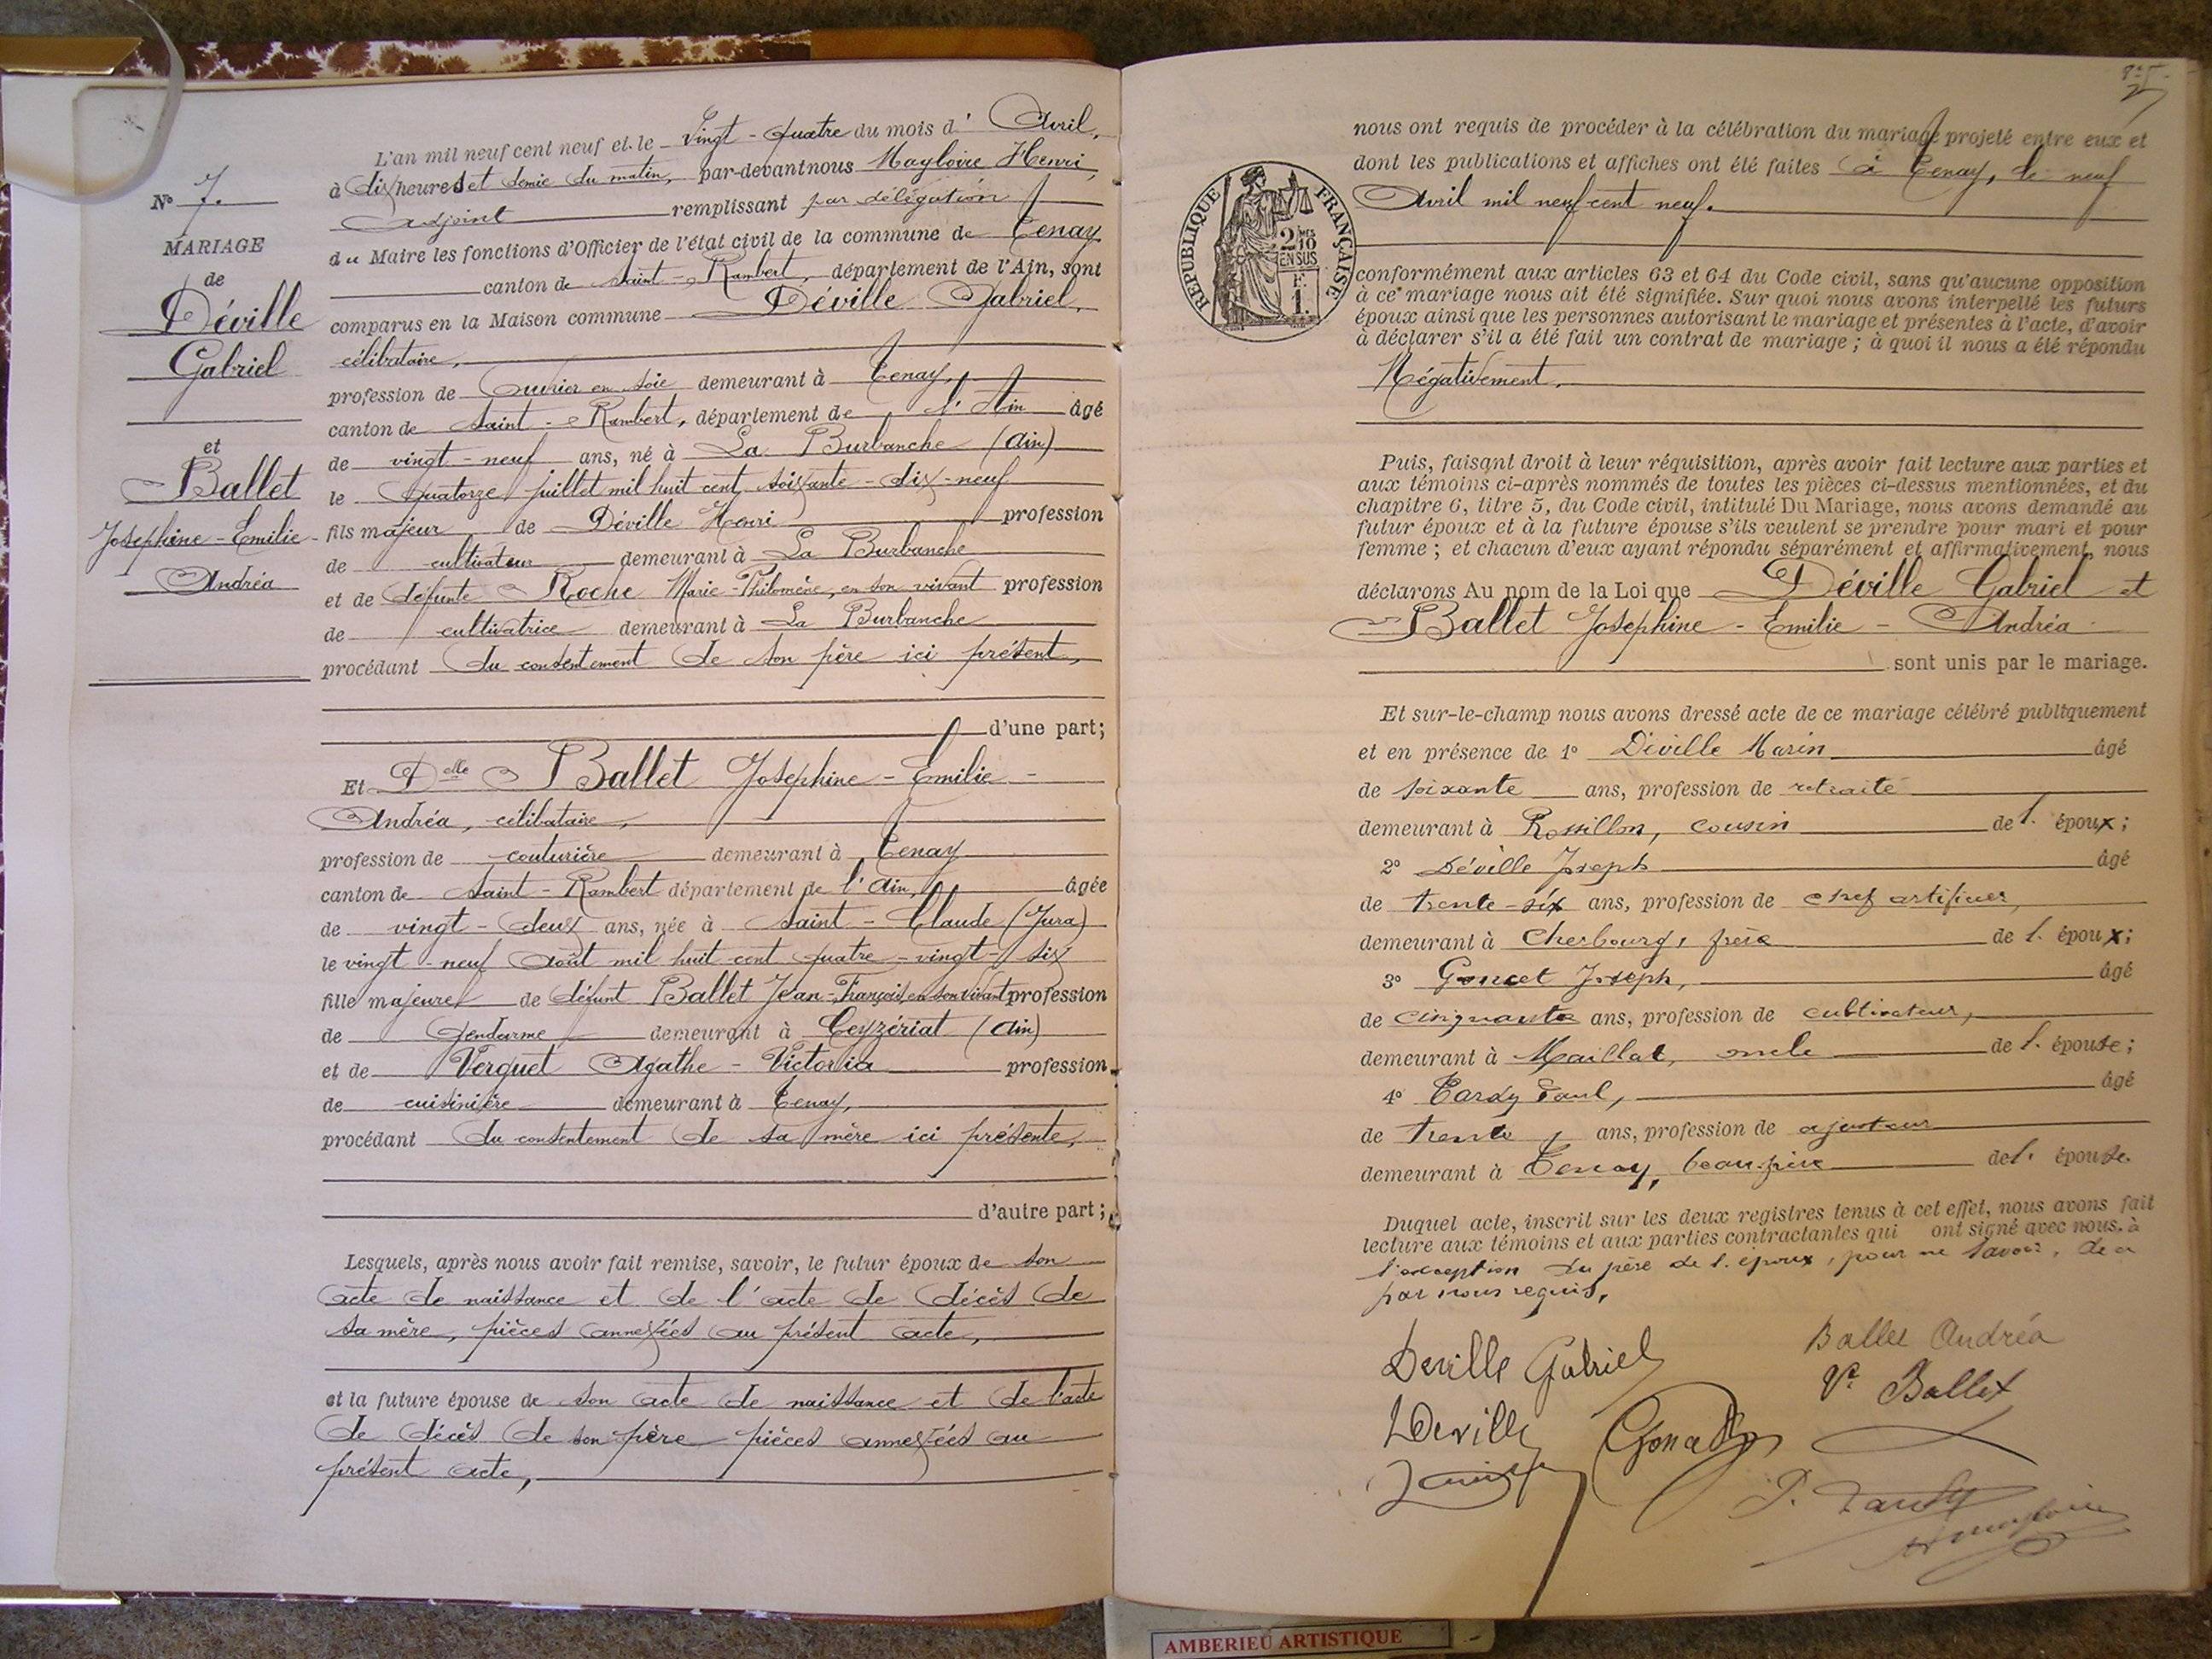 N° 7.
MARIAGE
de
Déville
Gabriel
et
Ballet
Josephine-Emilie-
Andréa
L'an mil neuf cent neuf et le vingt-quatre du mois d'Avril,
à dix heures et demie du matin, par-devant nous Magloire Henri,
adjoint remplissant par délégation
du Maire les fonctions d'Officier de l'état civil de la commune de Tenay
canton de Saint-Rambert, département de l'Ain, sont
comparus en la Maison commune Déville Gabriel,
célibataire,
profession de Ouvrier en soie demeurant à Tenay,
canton de Saint-Rambert, département de l'Ain âgé
de vingt-neuf ans, né à La Burbanche (Ain)
le quatorze juillet mil huit cent soixante-dix-neuf
fils majeur de Déville Henri profession
de cultivateur demeurant à La Burbanche
et de défunte Roche Marie-Philomène, en son vivant profession
de cultivatrice demeurant à La Burbanche
procédant du consentement de son père ici présent,
d'une part;
Et Delle Ballet Josephine-Emilie-
Andréa, célibataire,
profession de couturière demeurant à Tenay
canton de Saint-Rambert département de l'Ain, âgée
de vingt-deux ans, née à Saint-Claude (Jura)
le vingt-neuf Août mil huit cent quatre-vingt-six
fille majeure de défunt Ballet Jean-François, en son vivant profession
de Gendarme demeurant à Ceyzériat (Ain)
et de Verguet Agathe-Victoria profession
de cuisinière demeurant à Tenay,
procédant du consentement de sa mère ici présente,
d'autre part;
Lesquels, après nous avoir fait remise, savoir, le futur époux de son
acte de naissance et de l'acte de décès de
sa mère, pièces annexées au présent acte,
et la future épouse de son acte de naissance et de l'acte
de décès de son père pièces annexées au
présent acte,
nous ont requis de procéder à la célébration du mariage projeté entre eux et
dont les publications et affiches ont été faites à Tenay, le neuf
Avril mil neuf cent neuf.
RÉPUBLIQUE FRANÇAISE
2/10 MES
EN SUS
F.
1.
conformément aux articles 63 et 64 du Code civil, sans qu'aucune opposition
à ce mariage nous ait été signifiée. Sur quoi nous avons interpellé les futurs
époux ainsi que les personnes autorisant le mariage et présentes à l'acte, d'avoir
à déclarer s'il a été fait un contrat de mariage; à quoi il nous a été répondu
Négativement.
Puis, faisant droit à leur réquisition, après avoir fait lecture aux parties et
aux témoins ci-après nommés de toutes les pièces ci-dessus mentionnées, et du
chapitre 6, titre 5, du Code civil, intitulé Du Mariage, nous avons demandé au
futur époux et à la future épouse s'ils veulent se prendre pour mari et pour
femme; et chacun d'eux ayant répondu séparément et affirmativement, nous
déclarons Au nom de la Loi que Déville Gabriel et
Ballet Josephine-Emilie-Andréa
sont unis par le mariage.
Et sur-le-champ nous avons dressé acte de ce mariage célébré publiquement
et en présence de 1° Déville Marin âgé
de soixante ans, profession de retraité
demeurant à Rossillon, cousin de l. époux;
2° Déville Joseph âgé
de trente-six ans, profession de chef artificier,
demeurant à Cherbourg, frère de l. époux;
3° Goncet Joseph, âgé
de cinquante ans, profession de cultivateur,
demeurant à Maillat, oncle de l. épouse;
4° Tardy Paul, âgé
de trente, ans, profession de ajusteur
demeurant à Tenay, beau-frère de l. épouse.
Duquel acte, inscrit sur les deux registres tenus à cet effet, nous avons fait
lecture aux témoins et aux parties contractantes qui ont signé avec nous. à
l'exception du père de l. époux, pour ne savoir, de ce
par nous requis.
Deville Gabriel
Ballet Andréa
Ve Ballet
Deville
P. Tardy
AMBERIEU ARTISTIQUE